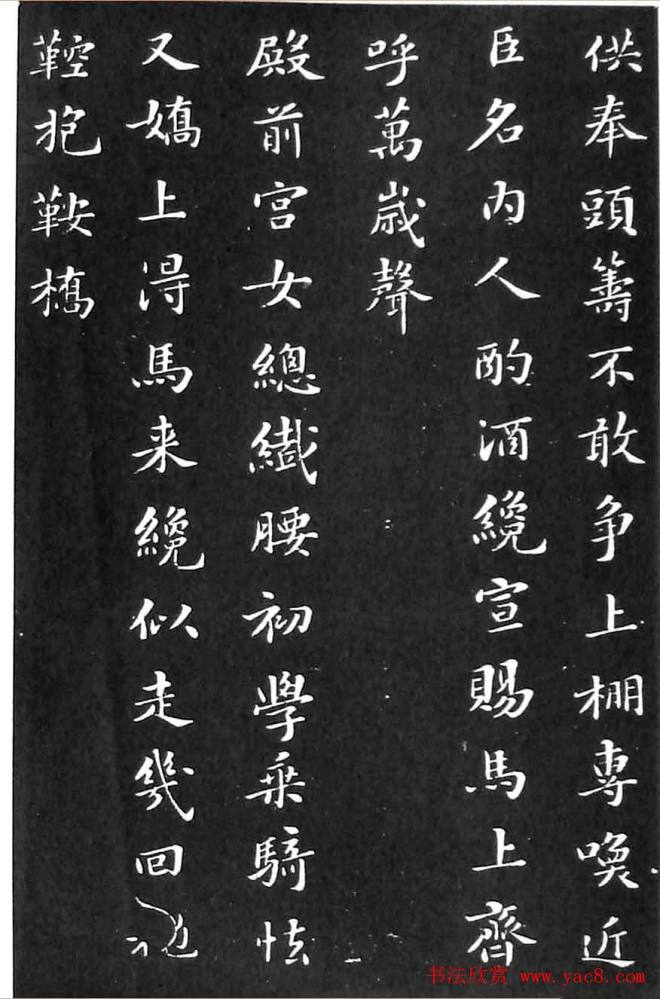 供奉頭籌不敢争上棚專喚近
臣名内人酌酒纔宣賜馬上齊
呼萬歲聲
殿前宫女總纖腰初學乗騎怯
又嬌上得馬来纔似走幾回
鞚抱鞍橋
书法欣赏 www.yac8.com